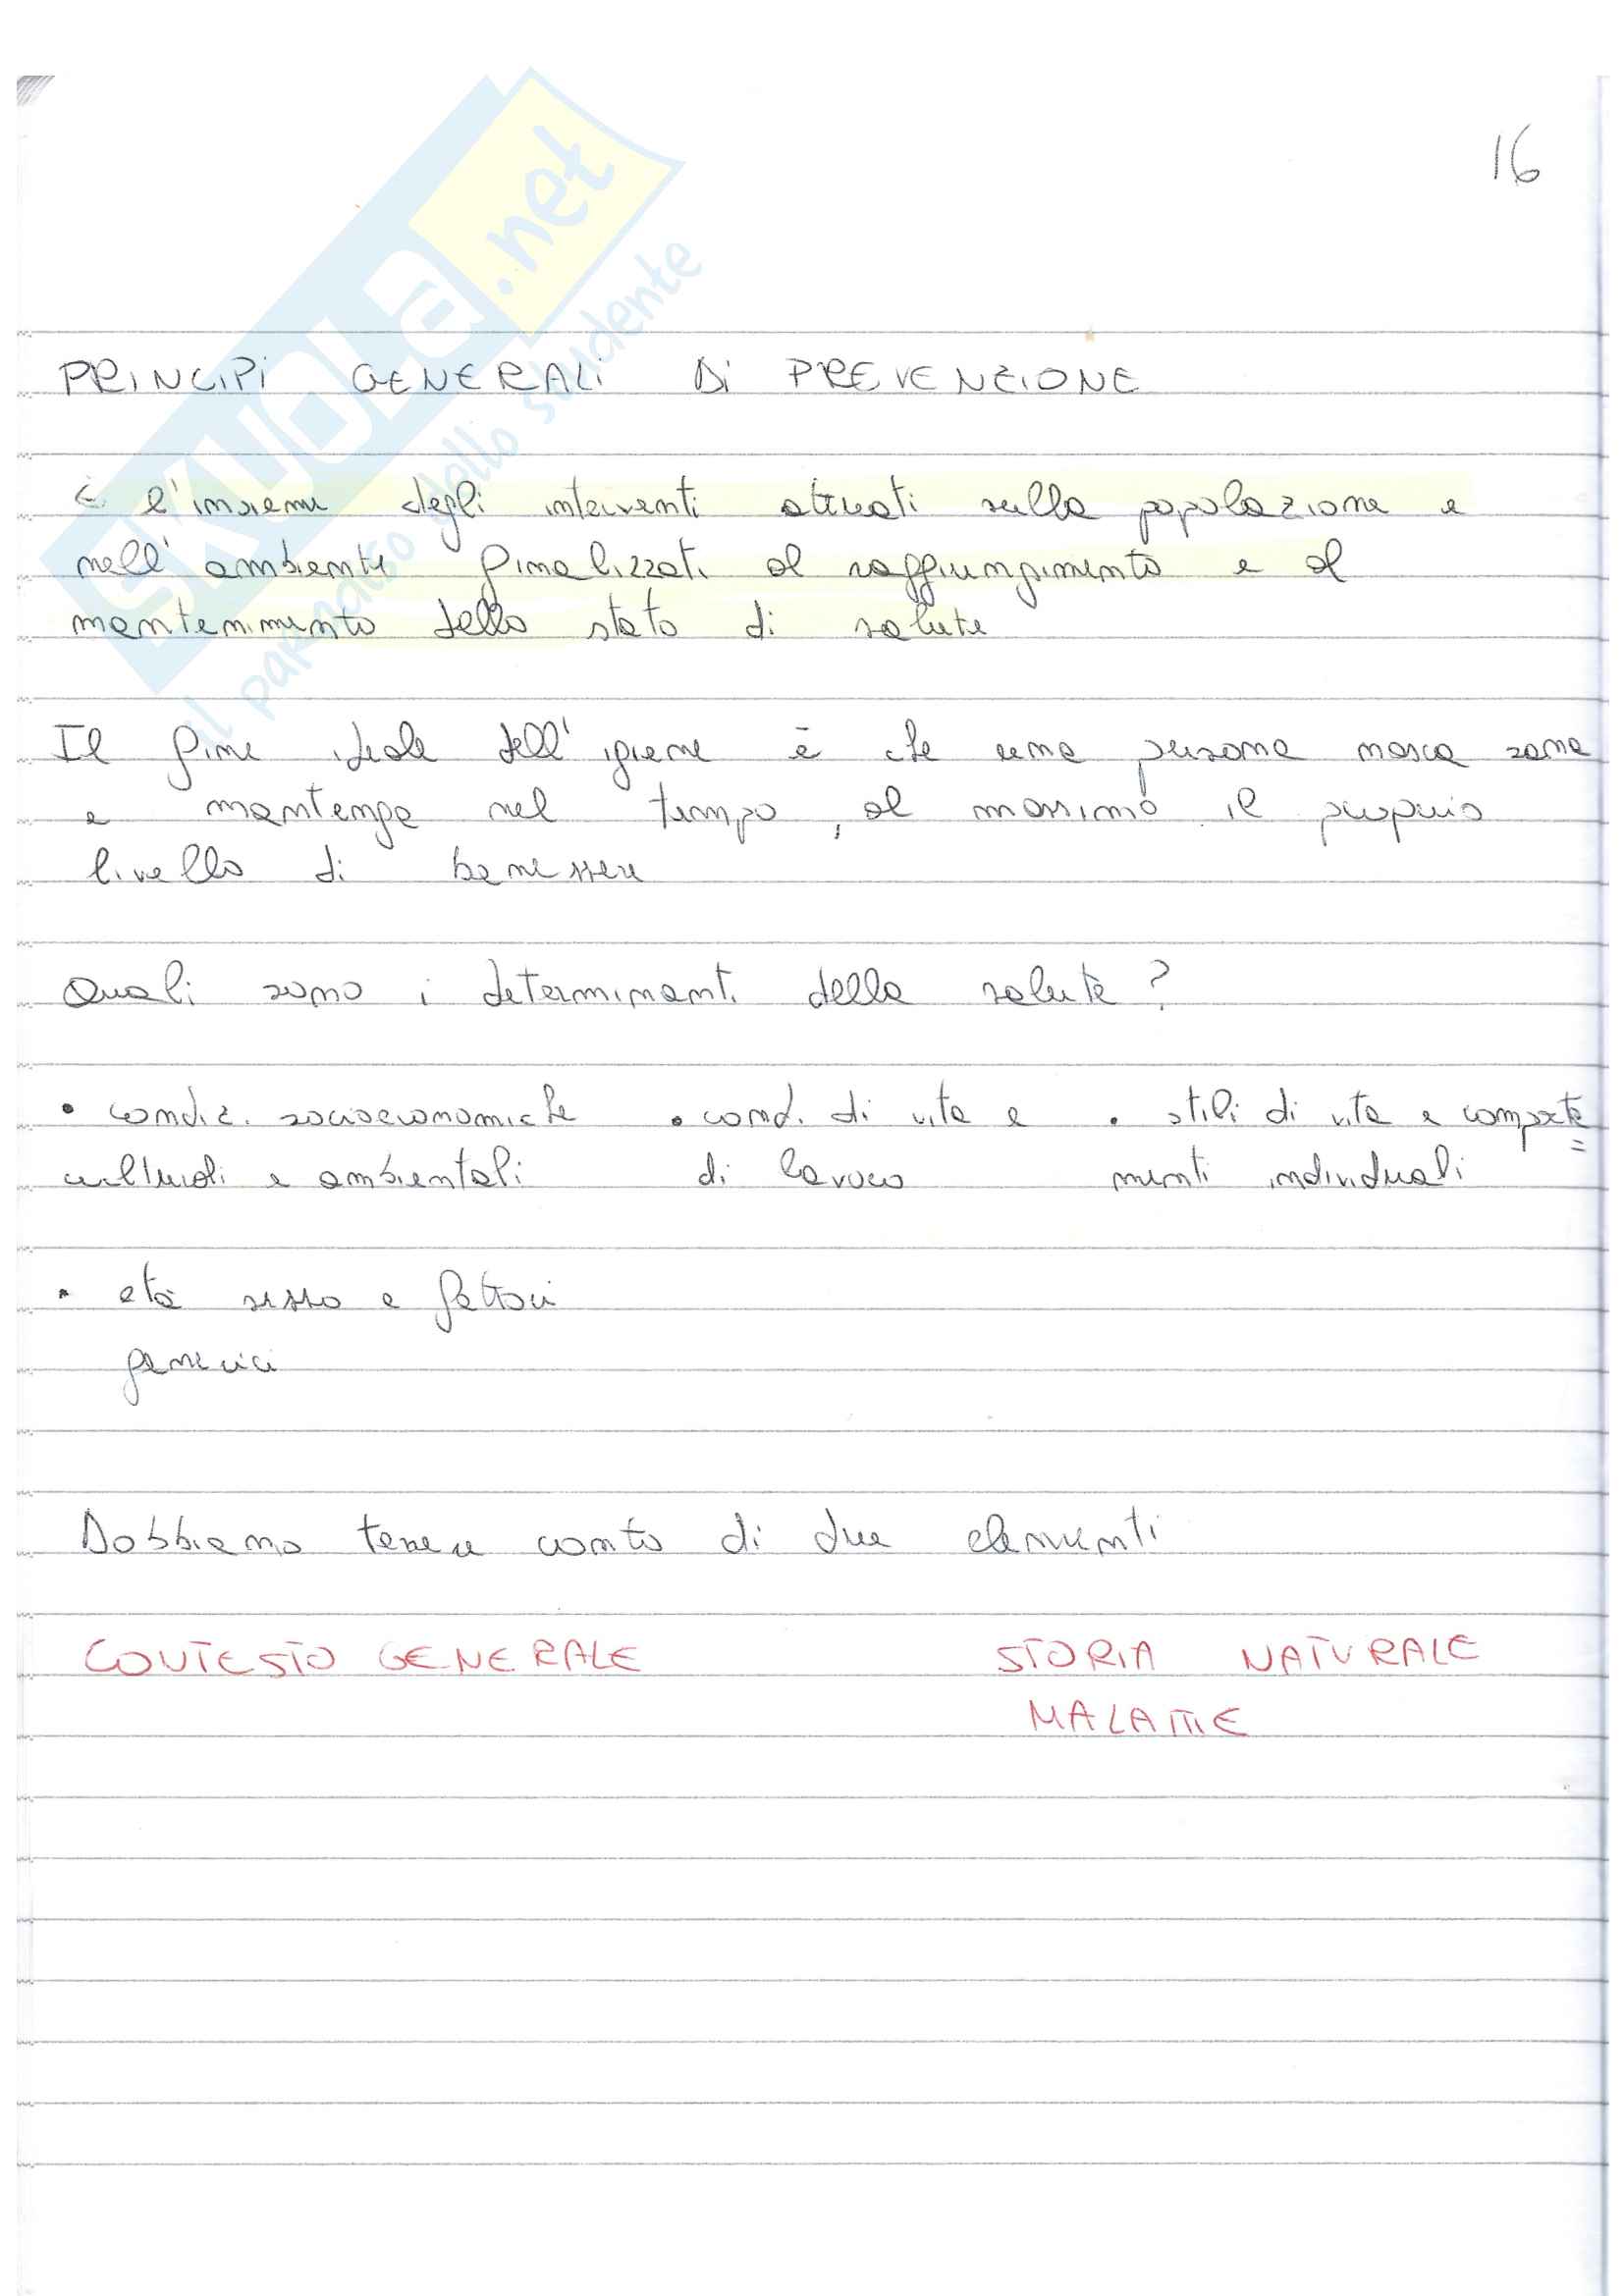 16
SKUOLA.net
il paradiso dello studente
PRINCIPI GENERALI Di PREVENZIONE
È l'insieme degli interventi attuati sulla popolazione e
nell'ambiente finalizzati al raggiungimento e al
mantenimento dello stato di salute
Il fine ideale dell'igiene è che una persona nasca sana
e mantenga nel tempo, al massimo il proprio
livello di benessere
Quali sono i determinanti della salute?
• condiz. socioeconomiche • cond. di vita e • stili di vita e comporta=
culturali e ambientali di lavoro menti individuali
• età sesso e fattori
Dobbiamo tenere conto di due elementi
CONTESTO GENERALE STORIA NATURALE
MALATTIE